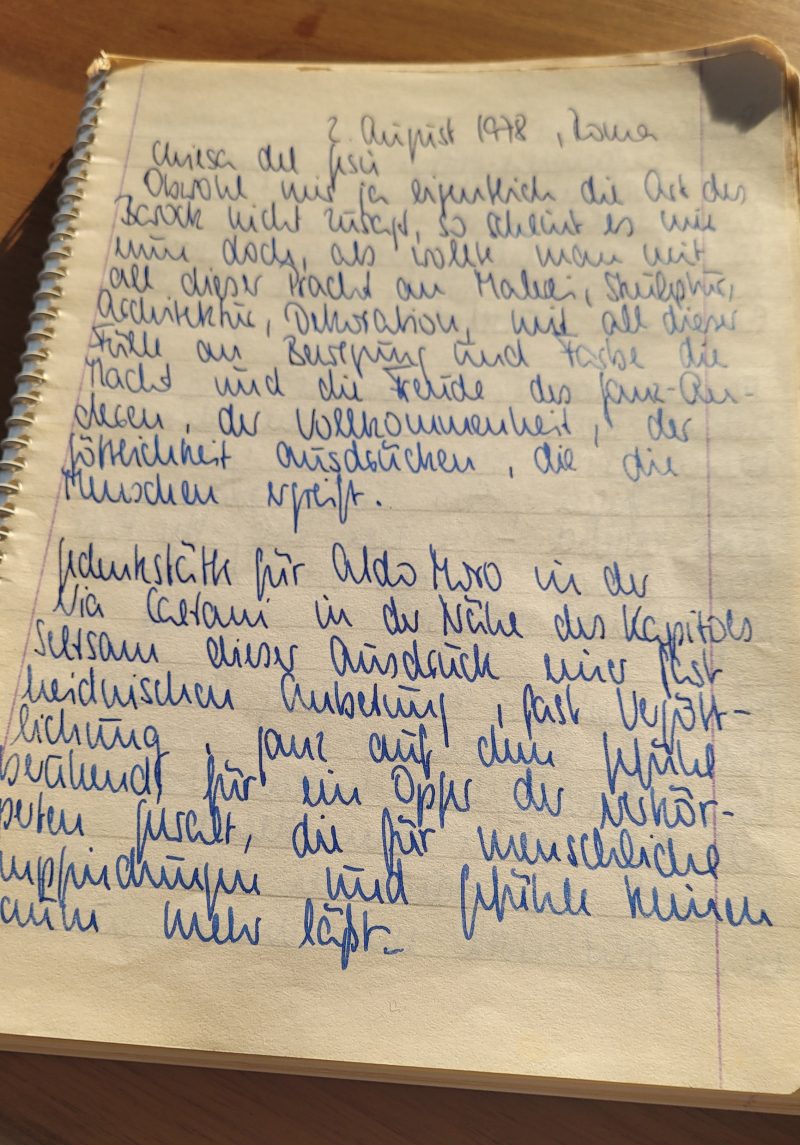 2. August 1978, Roma
Chiesa del Gesù
Obwohl mir ja eigentlich die Art des
Barock nicht zusagt, so scheint es mir
nun doch, als wollte man mit
all dieser Pracht an Malerei, Skulptur,
Architektur, Dekoration, mit all dieser
Fülle an Bewegung und Farbe die
Macht und die Freude des Ganz-An-
deren, der Vollkommenheit, der
Göttlichkeit ausdrücken, die die
Menschen ergreift.
Gedenkstätte für Aldo Moro in der
Via Caetani in der Nähe des Kapitols
Seltsam dieser Ausdruck einer fast
heidnischen Anbetung, fast Vergött-
lichung, ganz auf dem Gefühl
beruhend, für ein Opfer der verkör-
perten Gewalt, die für menschliche
mpfindungen und Gefühle keinen
aum mehr läßt.